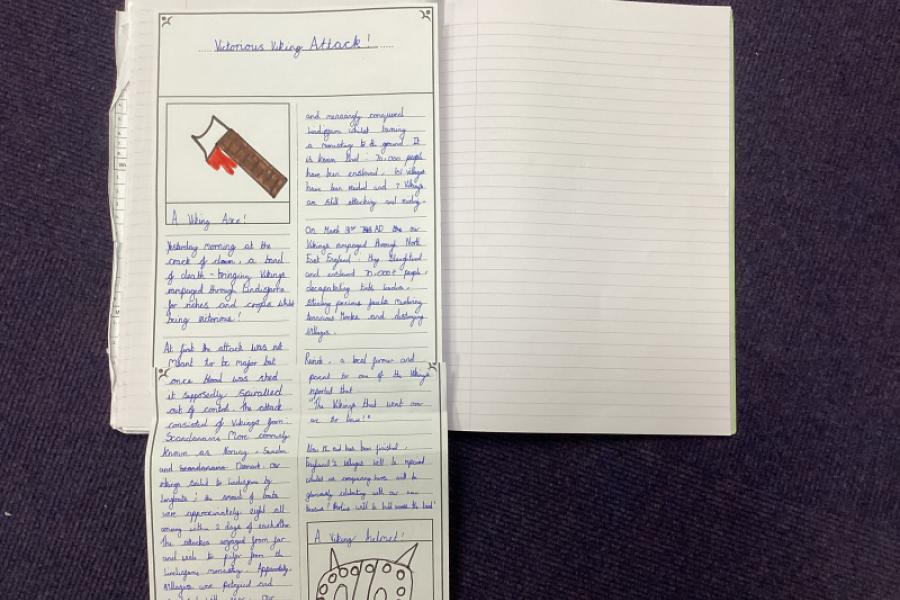 Victorious Viking Attack!
A Viking Axe!
Yesterday morning at the
crack of dawn, a band
of death-bringing Vikings
rampaged through Lindisfarne
for riches and corpses whilst
being victorious!
At first the attack was not
meant to be major but
once blood was shed
it supposedly spiralled
out of control. The attack
consisted of Vikings from:
Scandanavia More comonly
known as Norway, Sweden
and Scandanavia Denmark. Our
vikings sailed to Lindisfarne by
longboats; the amount of boats
were approximately eight all
coming with 2 days of eachother
The attackers voyaged from far
and wide to pilfer from the
Lindisfarne monastery. Apparently,
villages were pillaged and
our
and conquered
Lindisfarne whilst burning
a monastery to the ground. It
is known that: 70,000 people
have been enslaved, villages
have been raided and 7 Vikings
are still attacking and raiding.
On March 3rd AD the our
Vikings rampaged through North
East England: they slaughtered
and enslaved 70,000+ people,
decapitating their leaders,
stealing precious jewels
Monks and destroying
villages.
a local farmer and
parent to one of the Vikings
reported that
"The Vikings that went over
are the best!"
Now the raid has been finished,
England's villages will be
whilst us conquering heroes will be
gloriously celebrating with our own
will be held across the land!
A Viking Helmet!